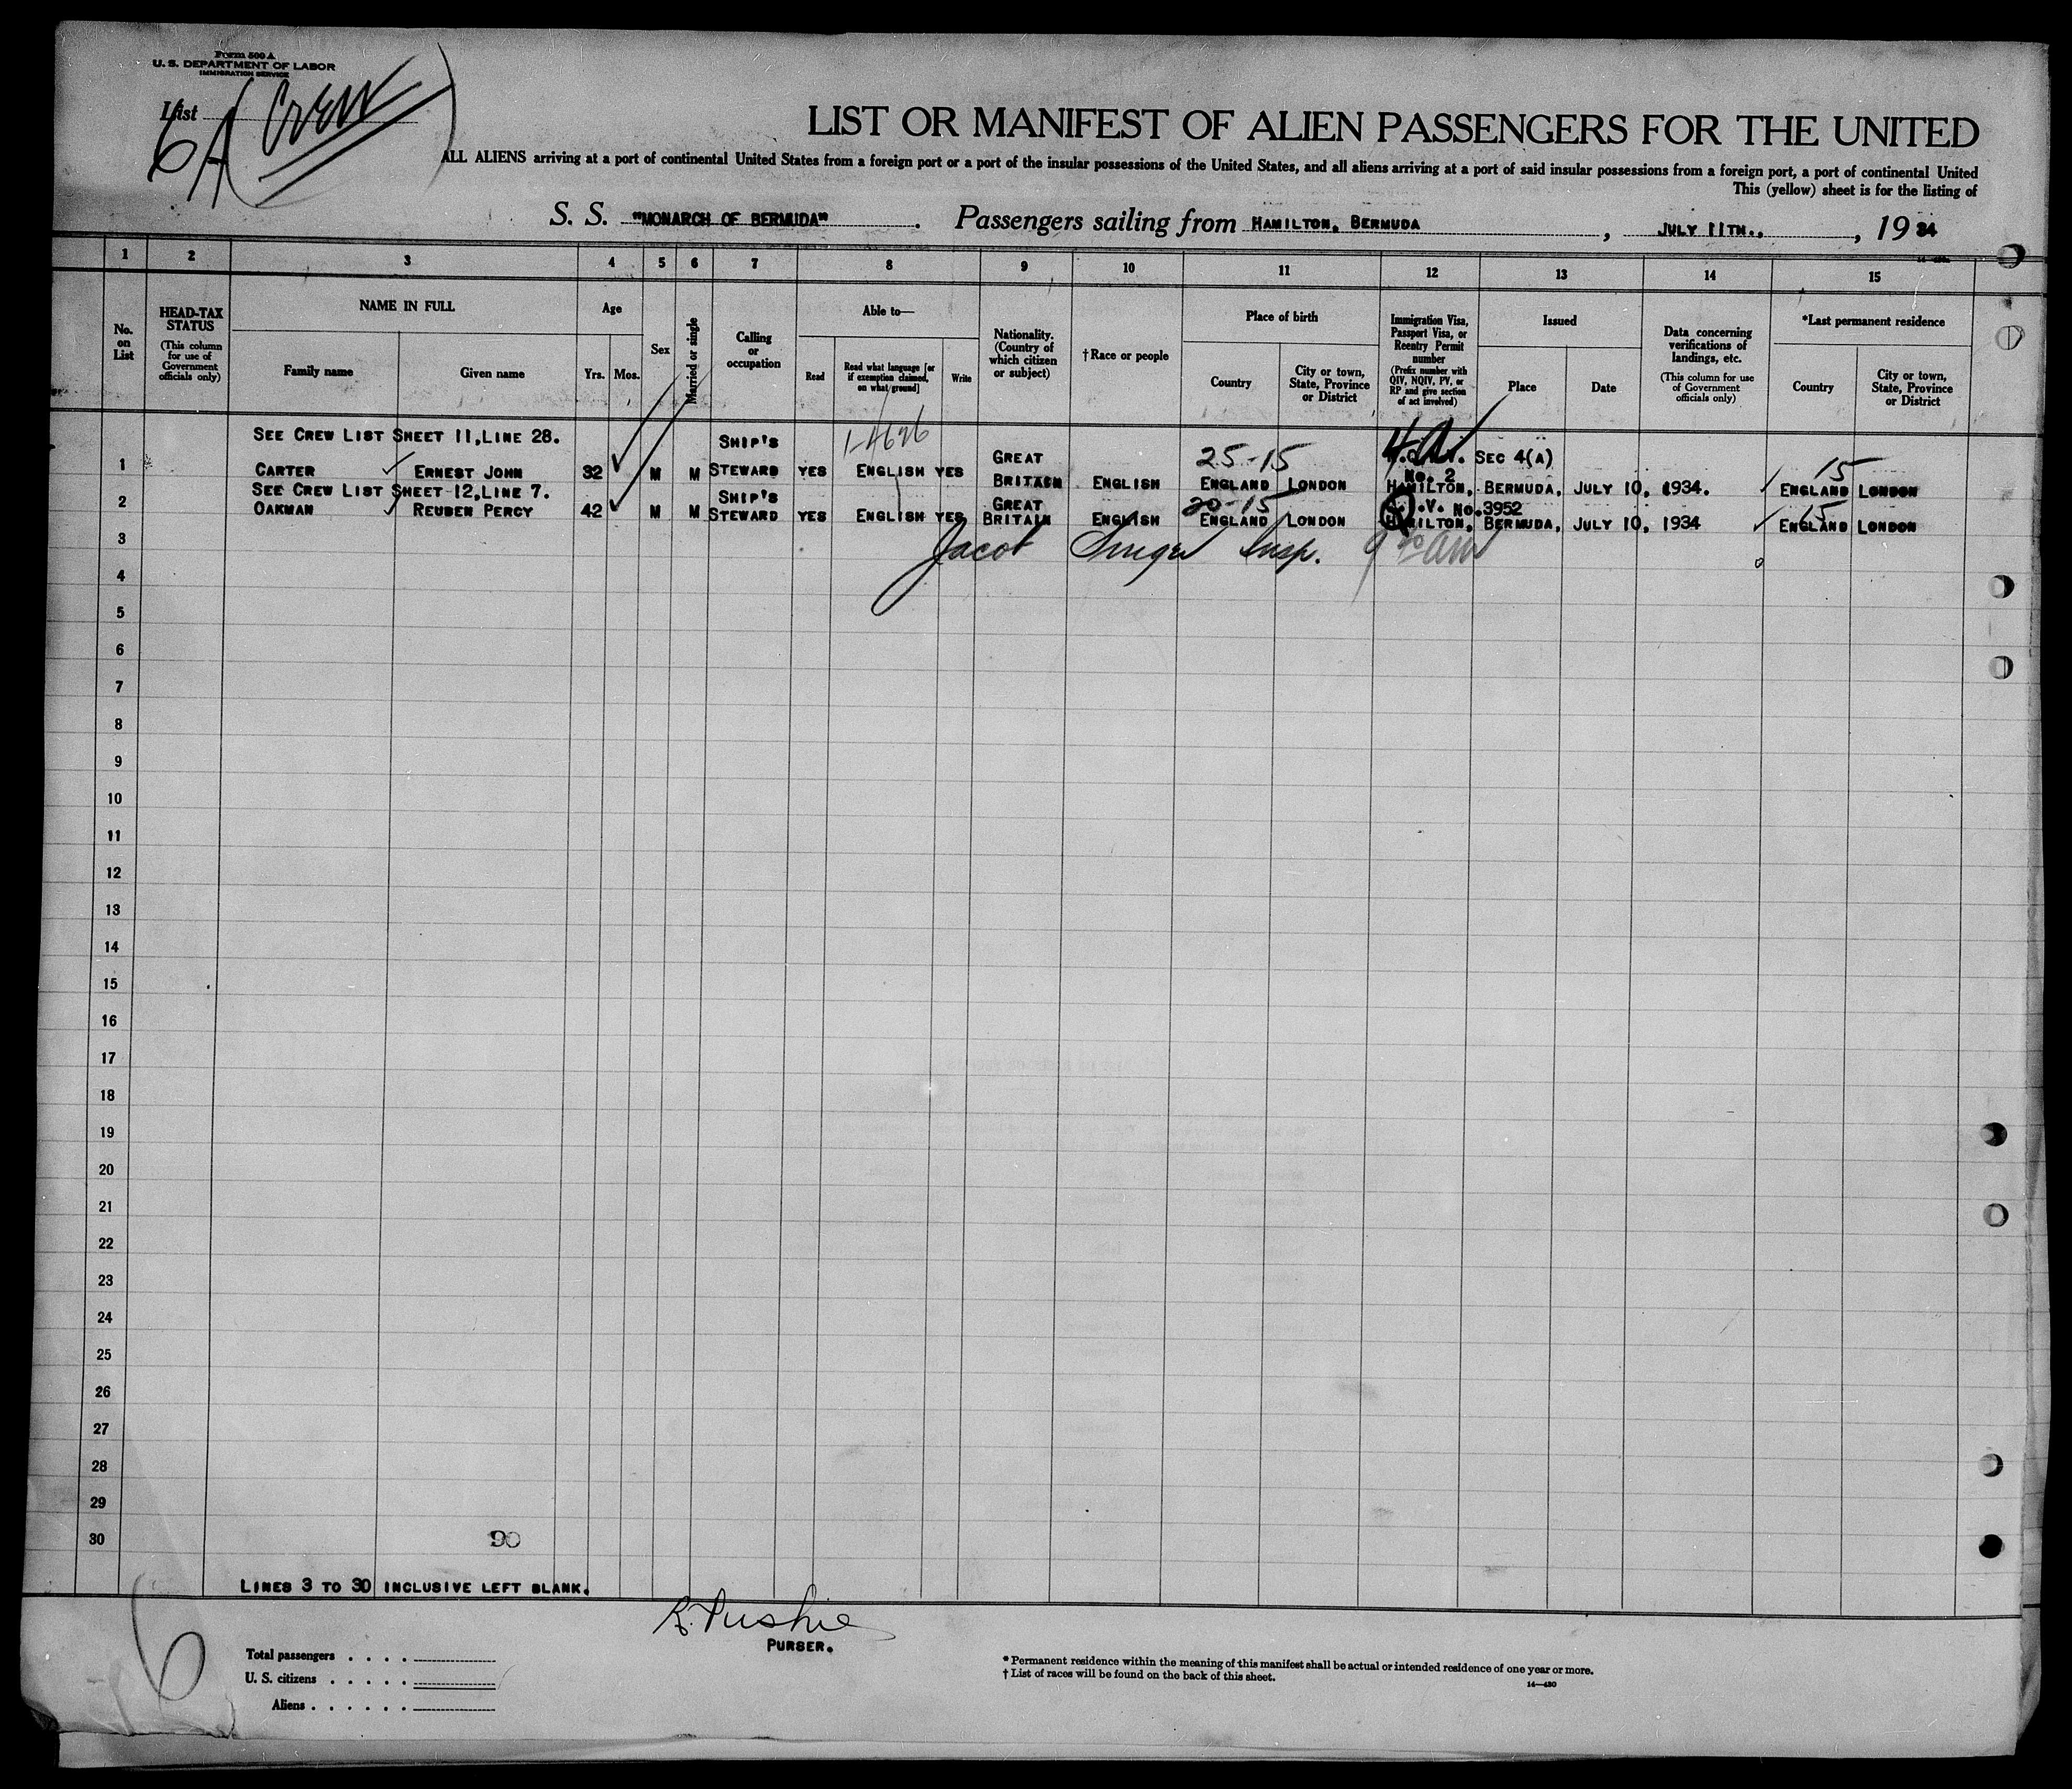 Form 500 A
U. S. DEPARTMENT OF LABOR
IMMIGRATION SERVICE
List
6A (Crew)
LIST OR MANIFEST OF ALIEN PASSENGERS FOR THE UNITED
ALL ALIENS arriving at a port of continental United States from a foreign port or a port of the insular possessions of the United States, and all aliens arriving at a port of said insular possessions from a foreign port, a port of continental United
This (yellow) sheet is for the listing of
S. S. "MONARCH OF BERMUDA" . Passengers sailing from HAMILTON, BERMUDA , JULY 11TH., , 1934
1 2 3 4 5 6 7 8 9 10 11 12 13 14 15
No. on List
HEAD-TAX STATUS
(This column for use of Government officials only)
NAME IN FULL
Family name
Given name
Age
Yrs. Mos.
Sex
Married or single
Calling or occupation
Able to—
Read
Read what language [or if exemption claimed, on what ground]
Write
Nationality. (Country of which citizen or subject)
†Race or people
Place of birth
Country
City or town, State, Province or District
Immigration Visa, Passport Visa, or Reentry Permit number
(Prefix number with QIV, NQIV, PV, or RP and give section of act involved)
Issued
Place
Date
Data concerning verifications of landings, etc.
(This column for use of Government officials only)
*Last permanent residence
Country
City or town, State, Province or District
SEE CREW LIST SHEET 11, LINE 28. SHIP'S GREAT 25-15 SEC 4(A) 15
1 CARTER ERNEST JOHN 32 M M STEWARD YES ENGLISH YES BRITAIN ENGLISH ENGLAND LONDON No. 2 HAMILTON, BERMUDA, JULY 10, 1934. ENGLAND LONDON
SEE CREW LIST SHEET 12, LINE 7. SHIP'S GREAT 20-15 .V. No.3952 15
2 OAKMAN REUBEN PERCY 42 M M STEWARD YES ENGLISH YES BRITAIN ENGLISH ENGLAND LONDON HAMILTON, BERMUDA, JULY 10, 1934 ENGLAND LONDON
3 Jacob Singer Insp.
4
5
6
7
8
9
10
11
12
13
14
15
16
17
18
19
20
21
22
23
24
25
26
27
28
29
30
90
LINES 3 TO 30 INCLUSIVE LEFT BLANK.
6
R. Pushie
PURSER.
Total passengers . . . .
U. S. citizens . . . . .
Aliens . . . . . .
* Permanent residence within the meaning of this manifest shall be actual or intended residence of one year or more.
† List of races will be found on the back of this sheet.
14—480